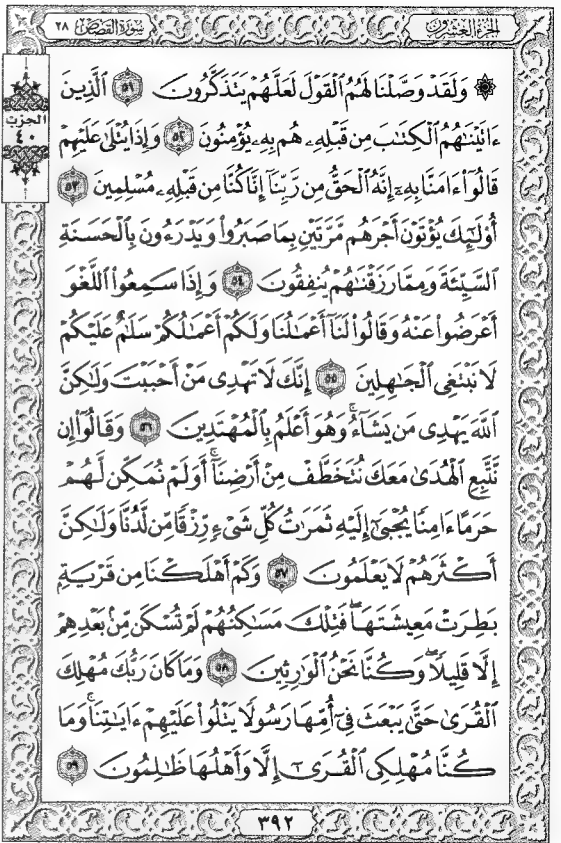 الجزء العشرون
سورة القصص ٢٨
۞ وَلَقَدْ وَصَّلْنَا لَهُمُ ٱلْقَوْلَ لَعَلَّهُمْ يَتَذَكَّرُونَ ٥١ ٱلَّذِينَ
ءَاتَيْنَٰهُمُ ٱلْكِتَٰبَ مِن قَبْلِهِۦ هُم بِهِۦ يُؤْمِنُونَ ٥٢ وَإِذَا يُتْلَىٰ عَلَيْهِمْ
قَالُوٓا۟ ءَامَنَّا بِهِۦٓ إِنَّهُ ٱلْحَقُّ مِن رَّبِّنَآ إِنَّا كُنَّا مِن قَبْلِهِۦ مُسْلِمِينَ ٥٣
أُو۟لَٰٓئِكَ يُؤْتَوْنَ أَجْرَهُم مَّرَّتَيْنِ بِمَا صَبَرُوا۟ وَيَدْرَءُونَ بِٱلْحَسَنَةِ
ٱلسَّيِّئَةَ وَمِمَّا رَزَقْنَٰهُمْ يُنفِقُونَ ٥٤ وَإِذَا سَمِعُوا۟ ٱللَّغْوَ
أَعْرَضُوا۟ عَنْهُ وَقَالُوا۟ لَنَآ أَعْمَٰلُنَا وَلَكُمْ أَعْمَٰلُكُمْ سَلَٰمٌ عَلَيْكُمْ
لَا نَبْتَغِى ٱلْجَٰهِلِينَ ٥٥ إِنَّكَ لَا تَهْدِى مَنْ أَحْبَبْتَ وَلَٰكِنَّ
ٱللَّهَ يَهْدِى مَن يَشَآءُ ۚ وَهُوَ أَعْلَمُ بِٱلْمُهْتَدِينَ ٥٦ وَقَالُوٓا۟ إِن
نَّتَّبِعِ ٱلْهُدَىٰ مَعَكَ نُتَخَطَّفْ مِنْ أَرْضِنَآ ۚ أَوَلَمْ نُمَكِّن لَّهُمْ
حَرَمًا ءَامِنًا يُجْبَىٰٓ إِلَيْهِ ثَمَرَٰتُ كُلِّ شَىْءٍ رِّزْقًا مِّن لَّدُنَّا وَلَٰكِنَّ
أَكْثَرَهُمْ لَا يَعْلَمُونَ ٥٧ وَكَمْ أَهْلَكْنَا مِن قَرْيَةٍ
بَطِرَتْ مَعِيشَتَهَا ۖ فَتِلْكَ مَسَٰكِنُهُمْ لَمْ تُسْكَن مِّنۢ بَعْدِهِمْ
إِلَّا قَلِيلًا ۖ وَكُنَّا نَحْنُ ٱلْوَٰرِثِينَ ٥٨ وَمَا كَانَ رَبُّكَ مُهْلِكَ
ٱلْقُرَىٰ حَتَّىٰ يَبْعَثَ فِىٓ أُمِّهَا رَسُولًا يَتْلُوا۟ عَلَيْهِمْ ءَايَٰتِنَا ۚ وَمَا
كُنَّا مُهْلِكِى ٱلْقُرَىٰٓ إِلَّا وَأَهْلُهَا ظَٰلِمُونَ ٥٩
الحزب
٤٠
٣٩٢